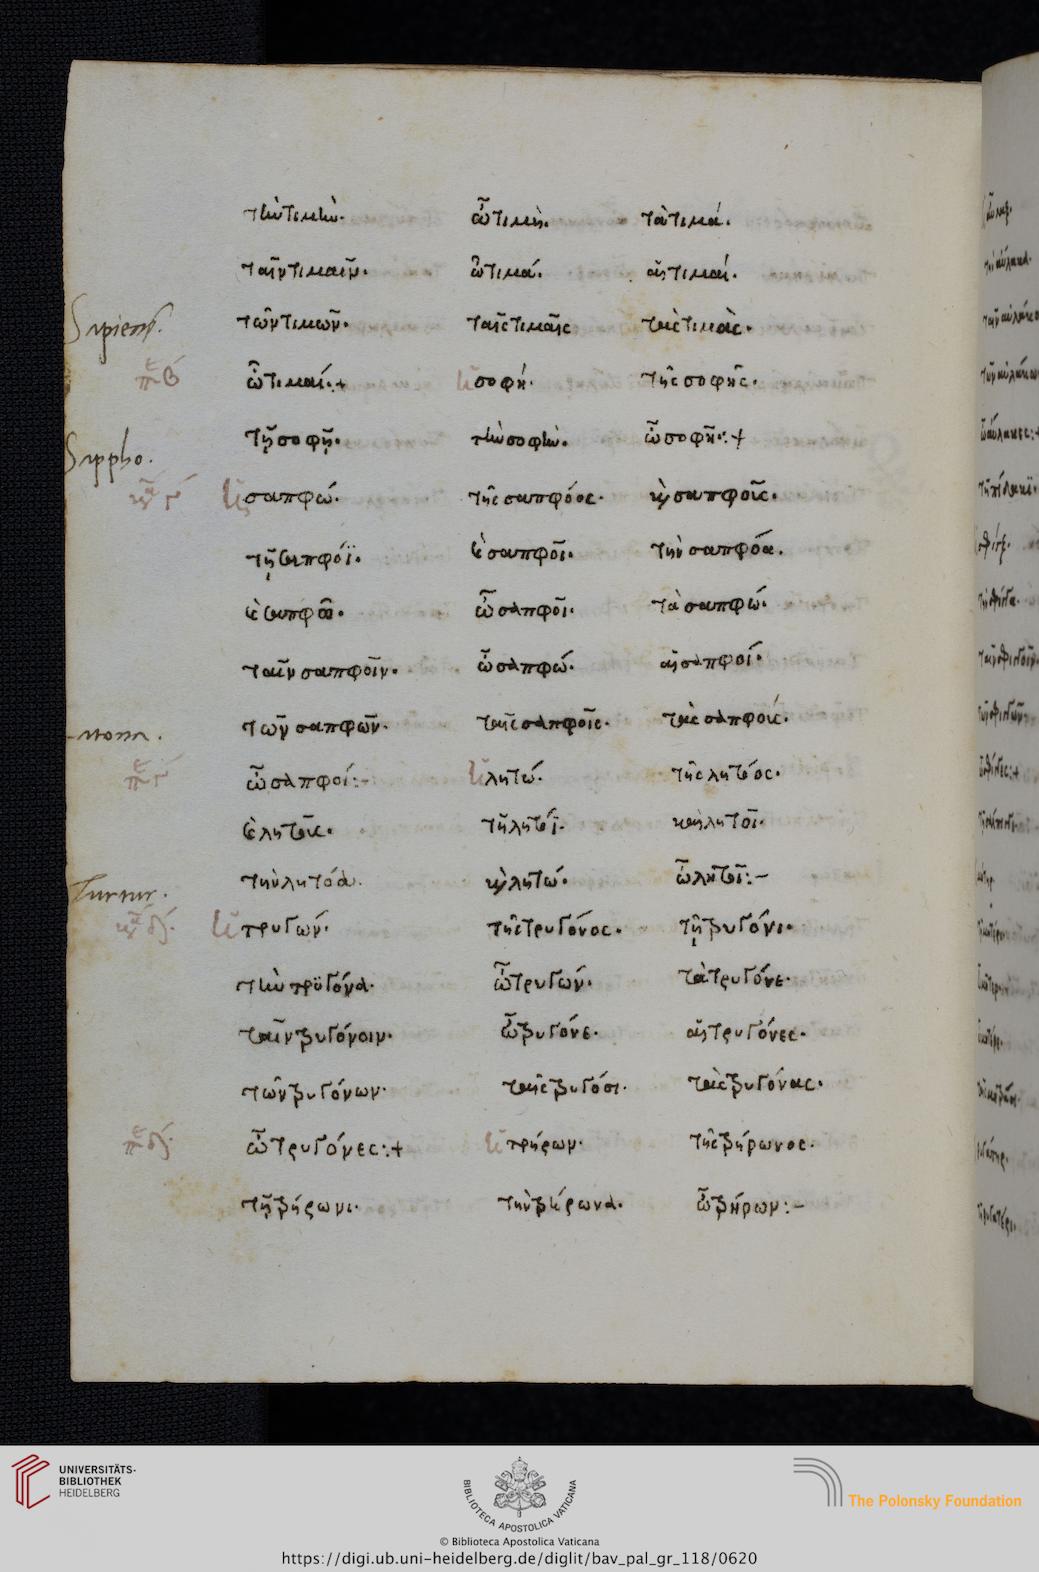 τὴν τιμὴν· ὦ τιμή· τὰ τιμά·
ταῖν τιμαῖν· ὦ τιμά· αἱ τιμαί·
τῶν τιμῶν· ταῖς τιμαῖς τὰς τιμὰς·
Sapiens.
ὦ τιμαί:+ ἡ σοφή· τῆς σοφῆς·
τῇ σοφῇ· τὴν σοφὴν· ὦ σοφῆ:+
Sappho.
ἡ σαπφώ· τῆς σαπφόος· κὶ σαπφοῖς·
τῇ σαπφόϊ· ὲ σαπφοῖ· τὴν σαπφόα·
ὲ σαπφῶ· ὦ σαπφοῖ· τὰ σαπφώ·
ταῖν σαπφοῖν· ὦ σαπφώ· αἱ σαπφοί·
τῶν σαπφῶν· ταῖς σαπφοῖς· τὰς σαπφούς·
ὦ σαπφοί:- ἡ λητώ· τῆς λητόος·
ὲ λητοῦς· τῇ λητόϊ· καὶ λητοῖ·
τὴν λητόα· κὶ λητώ· ὦ λητοῖ:-
Turtur.
ἡ τρυγών· τῆς τρυγόνος· τῇ τρυγόνι·
τὴν τρϋγόνα· ὦ τρυγών· τὰ τρυγόνε·
ταῖν τρυγόνοιν· ὦ τρυγόνε· αἱ τρυγόνες·
τῶν τρυγόνων· ταῖς τρυγόσι· τὰς τρυγόνας·
ὦ τρυγόνες:+ ἡ τρήρων· τῆς τρήρωνος·
τῇ τρήρωνι· τὴν τρήρωνα· ὦ τρήρων:-
UNIVERSITÄTS-
BIBLIOTHEK
HEIDELBERG
BIBLIOTECA APOSTOLICA VATICANA
The Polonsky Foundation
© Biblioteca Apostolica Vaticana
https://digi.ub.uni-heidelberg.de/diglit/bav_pal_gr_118/0620